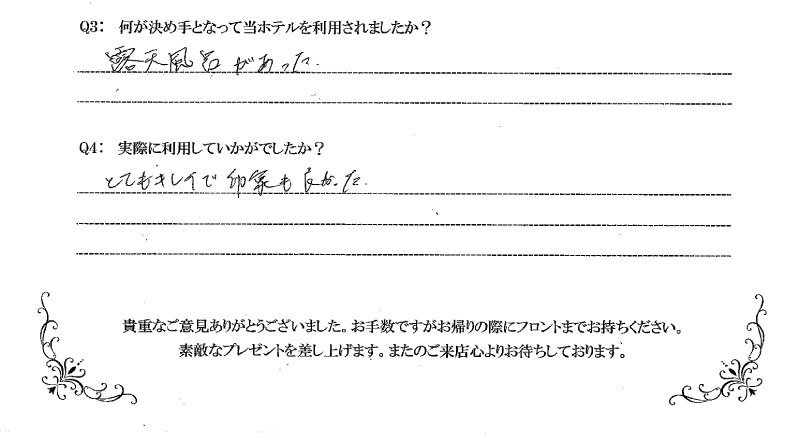 Q3： 何が決め手となって当ホテルを利用されましたか？
露天風呂があった.
Q4： 実際に利用していかがでしたか？
とてもキレイで 印象も良かった.
貴重なご意見ありがとうございました。お手数ですがお帰りの際にフロントまでお持ちください。
素敵なプレゼントを差し上げます。またのご来店心よりお待ちしております。